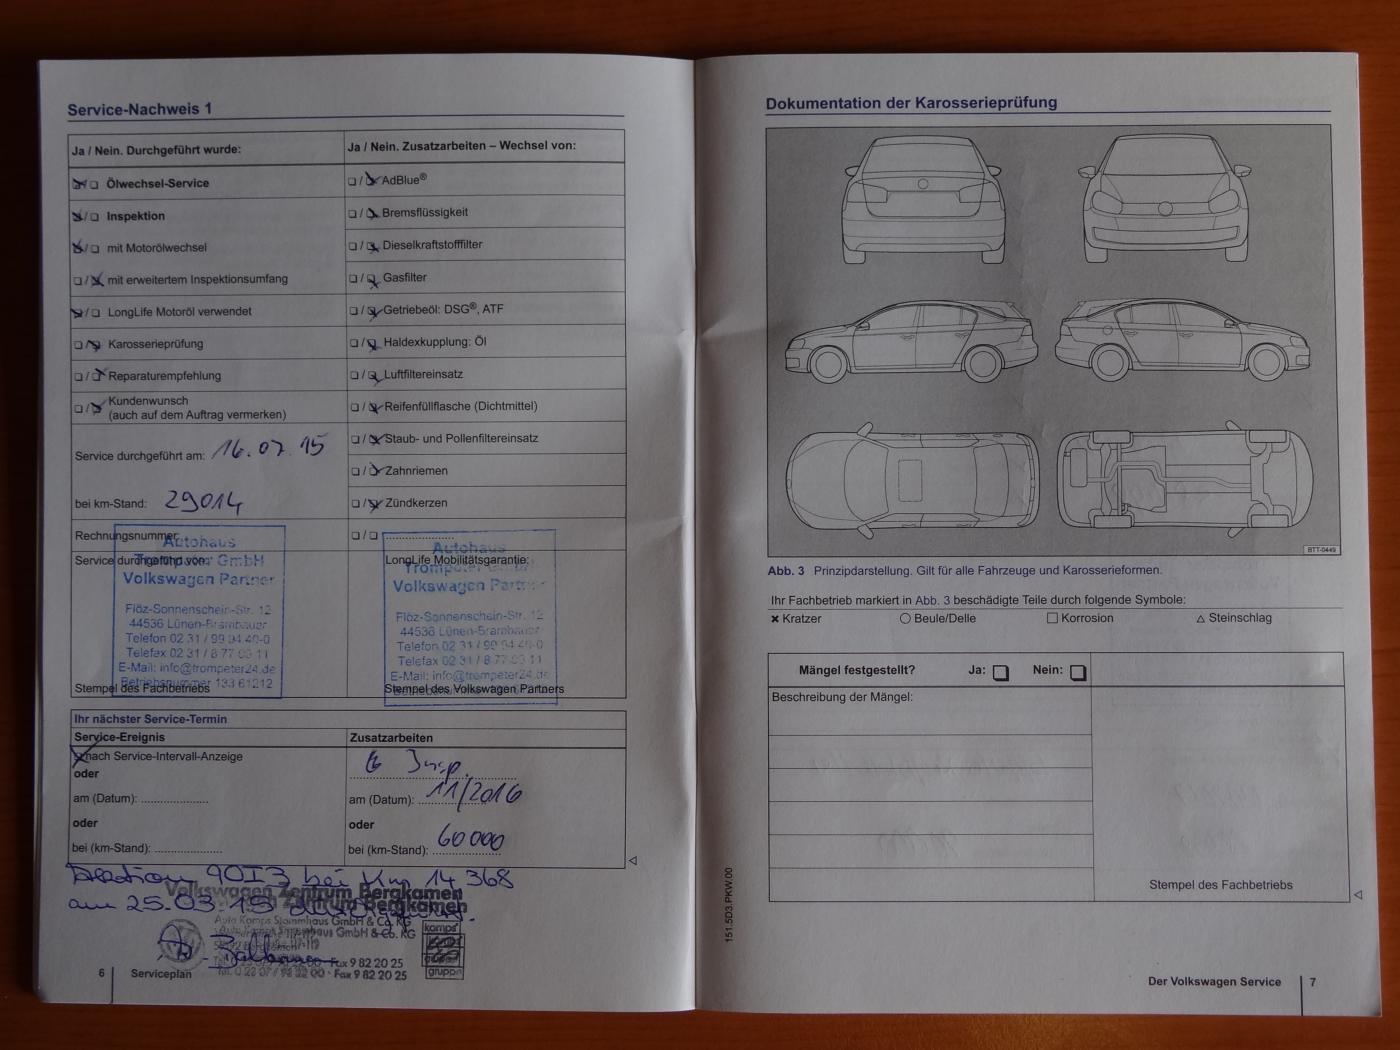 Service-Nachweis 1
Ja / Nein. Durchgeführt wurde:
Ölwechsel-Service
Inspektion
mit Motorölwechsel
mit erweitertem Inspektionsumfang
LongLife Motoröl verwendet
Karosserieprüfung
Reparaturempfehlung
Kundenwunsch
(auch auf dem Auftrag vermerken)
Service durchgeführt am: 16.07.15
bei km-Stand: 29014
Rechnungsnummer
Service durchgeführt von:
Autohaus
Trompeter GmbH
Volkswagen Partner
Flöz-Sonnenschein-Str. 12
44536 Lünen-Brambauer
Telefon 02 31 / 99 94 40-0
Telefax 02 31 / 8 77 03 11
E-Mail: info@trompeter24.de
Betriebsnummer 133 61212
Stempel des Fachbetriebs
Ja / Nein. Zusatzarbeiten – Wechsel von:
AdBlue®
Bremsflüssigkeit
Dieselkraftstofffilter
Gasfilter
Getriebeöl: DSG®, ATF
Haldexkupplung: Öl
Luftfiltereinsatz
Reifenfüllflasche (Dichtmittel)
Staub- und Pollenfiltereinsatz
Zahnriemen
Zündkerzen
LongLife Mobilitätsgarantie:
Autohaus
Trompeter GmbH
Volkswagen Partner
Flöz-Sonnenschein-Str. 12
44536 Lünen-Brambauer
Telefon 02 31 / 99 94 40-0
Telefax 02 31 / 8 77 03 11
E-Mail: info@trompeter24.de
Stempel des Volkswagen Partners
Ihr nächster Service-Termin
Service-Ereignis
nach Service-Intervall-Anzeige
oder
am (Datum):
oder
bei (km-Stand):
Zusatzarbeiten
Insp.
am (Datum): 11/2016
oder
bei (km-Stand): 60 000
90I3 bei Km 14 368
am 25.03.15
Volkswagen Zentrum Bergkamen
Auto Kamps Stammhaus GmbH & Co. KG
Fax 9 82 20 25
kamps
gruppe
6 Serviceplan
Dokumentation der Karosserieprüfung
BTT-0449
Abb. 3 Prinzipdarstellung. Gilt für alle Fahrzeuge und Karosserieformen.
Ihr Fachbetrieb markiert in Abb. 3 beschädigte Teile durch folgende Symbole:
Kratzer Beule/Delle Korrosion Steinschlag
Mängel festgestellt? Ja: Nein:
Beschreibung der Mängel:
Stempel des Fachbetriebs
151.5D3.PKW.00
Der Volkswagen Service 7